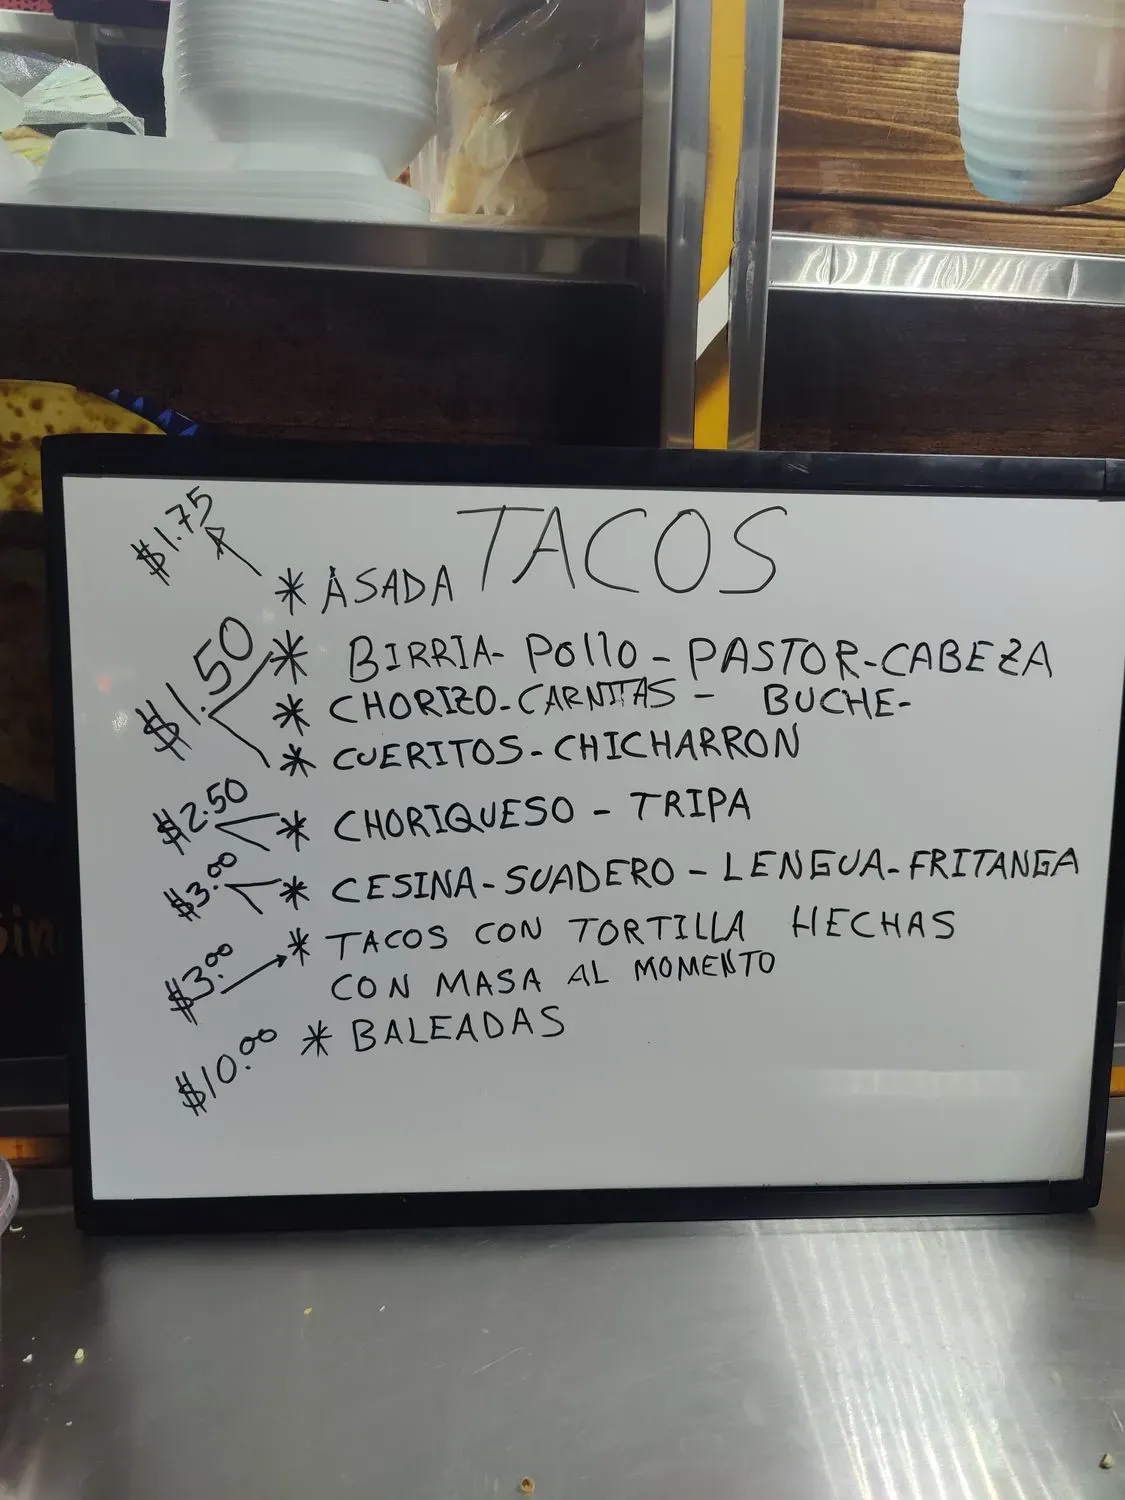 TACOS
$1.75
* ASADA
$1.50
* BIRRIA- Pollo - PASTOR-CABEZA
* CHORIZO-CARNITAS - BUCHE-
* CUERITOS-CHICHARRON
$2.50
* CHORIQUESO - TRIPA
$3.00
* CESINA-SUADERO-LENGUA-FRITANGA
$3.00
* TACOS CON TORTILLA HECHAS
CON MASA AL MOMENTO
$10.00 * BALEADAS